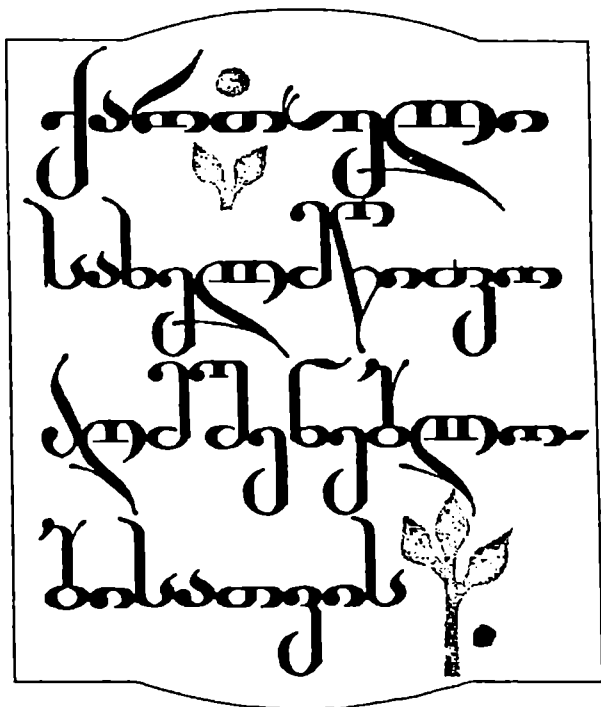 ქართული
სახელმწიფო
აღმშენებლო-
ბისათვის